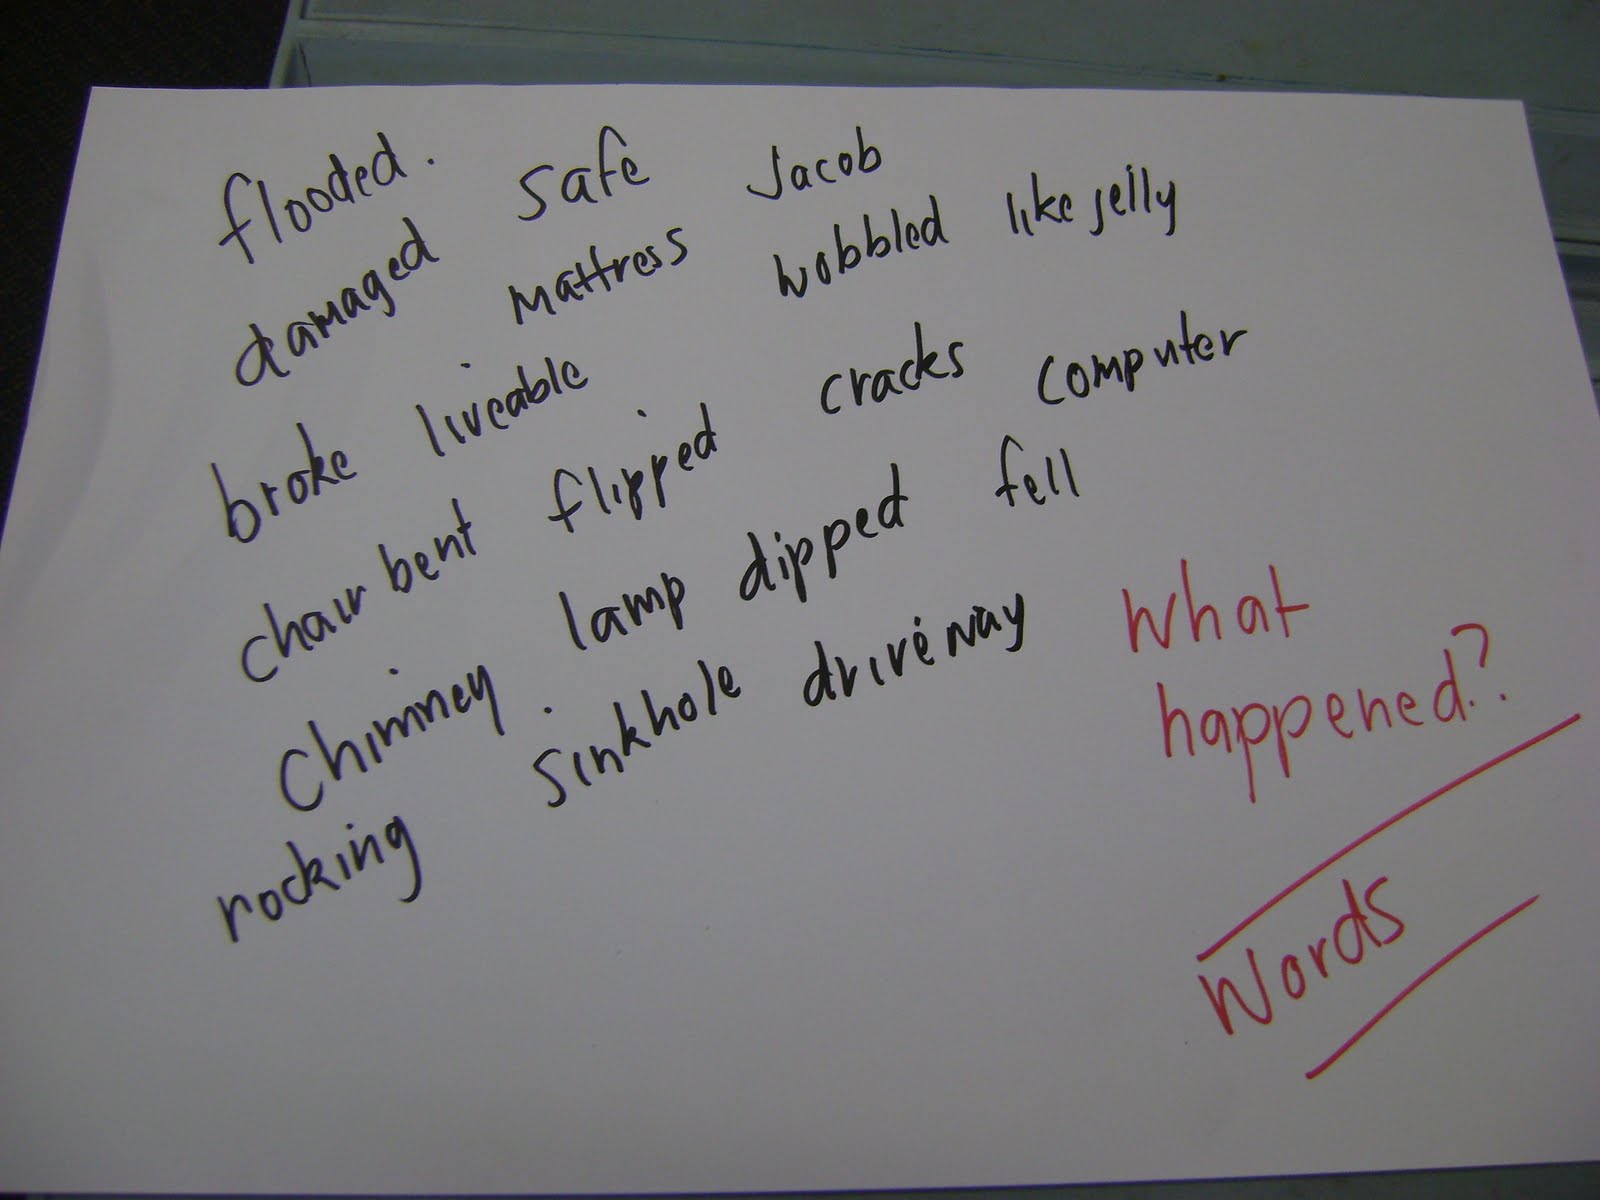 flooded. safe Jacob
damaged mattress wobbled like jelly
broke liveable cracks computer
chair bent flipped fell
chimney lamp dipped
rocking sinkhole driveway
What
happened?
Words